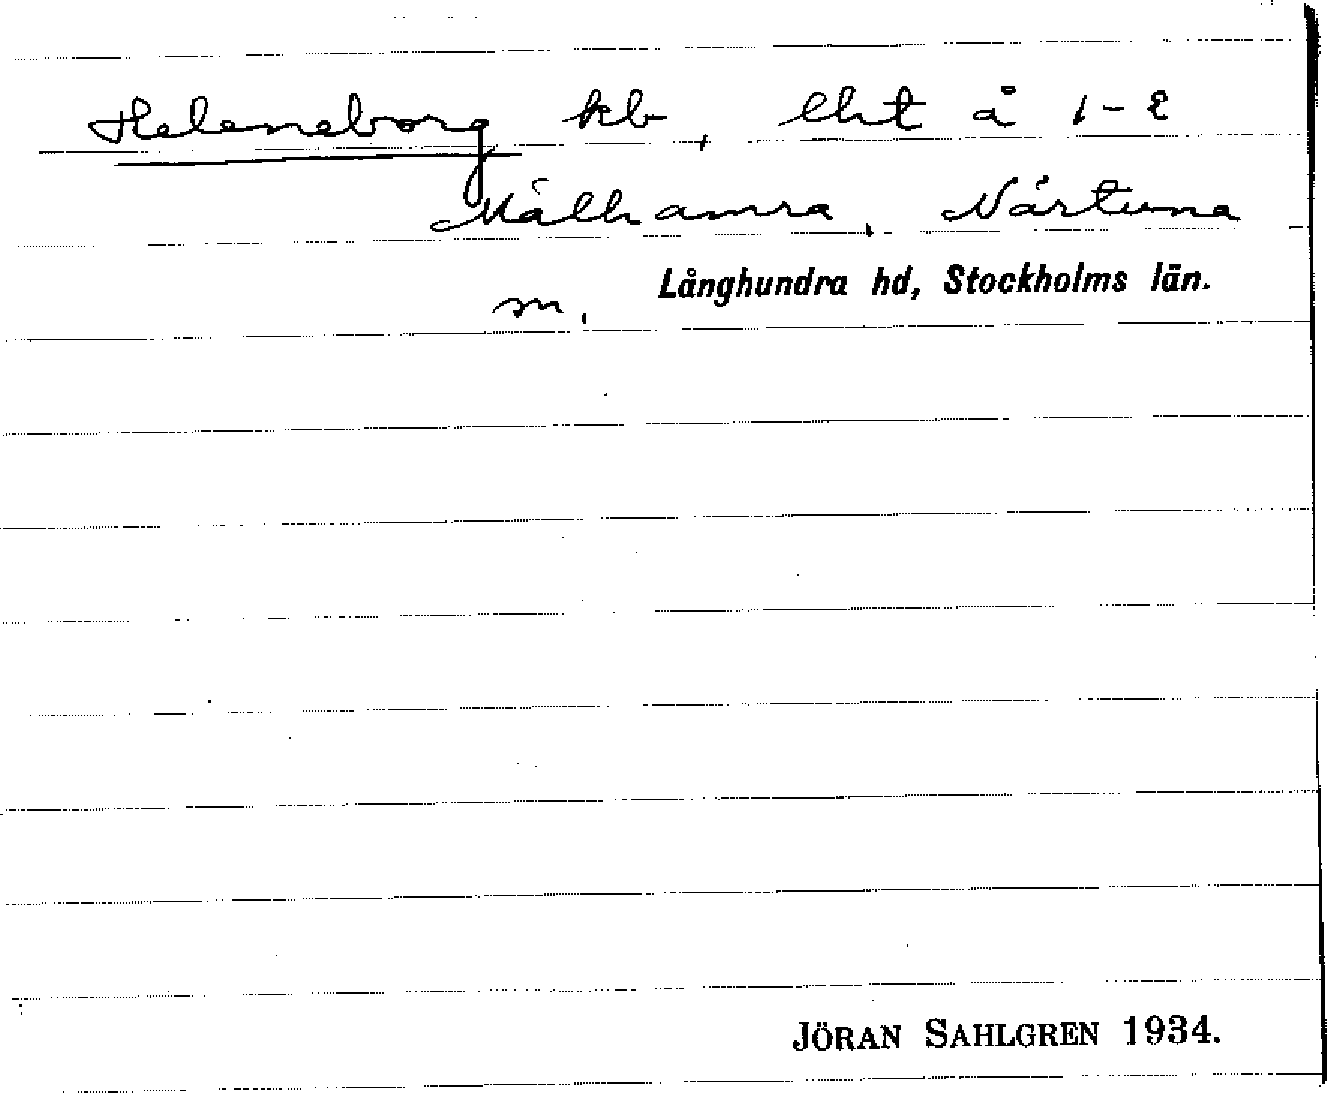 Heleneborg kb, lht å 1-2
Mälhamra, Närtuna
sn. Långhundra hd, Stockholms län.
JÖRAN SAHLGREN 1934.